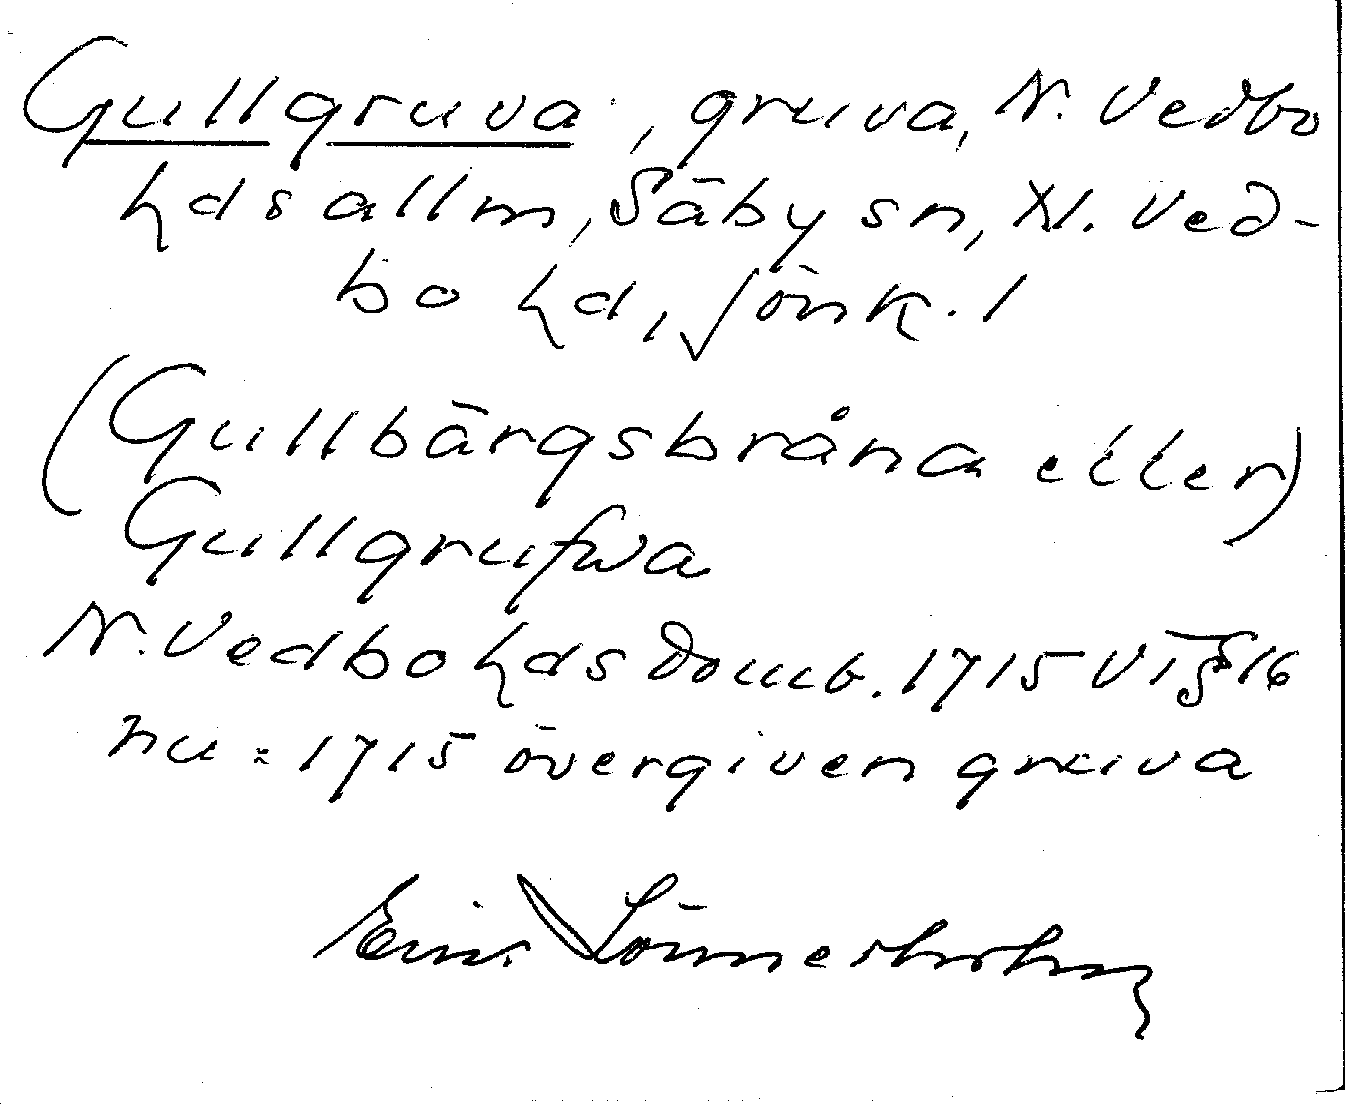 Gullgruva, gruva, N. Vedbo
hds allm, Säby sn, N. Ved-
bo hd, Jönk. l
(Gullbärgsbråna eller)
Gullgrufwa
N. Vedbo hds domb. 1715 VT § 16
nu = 1715 övergiven gruva